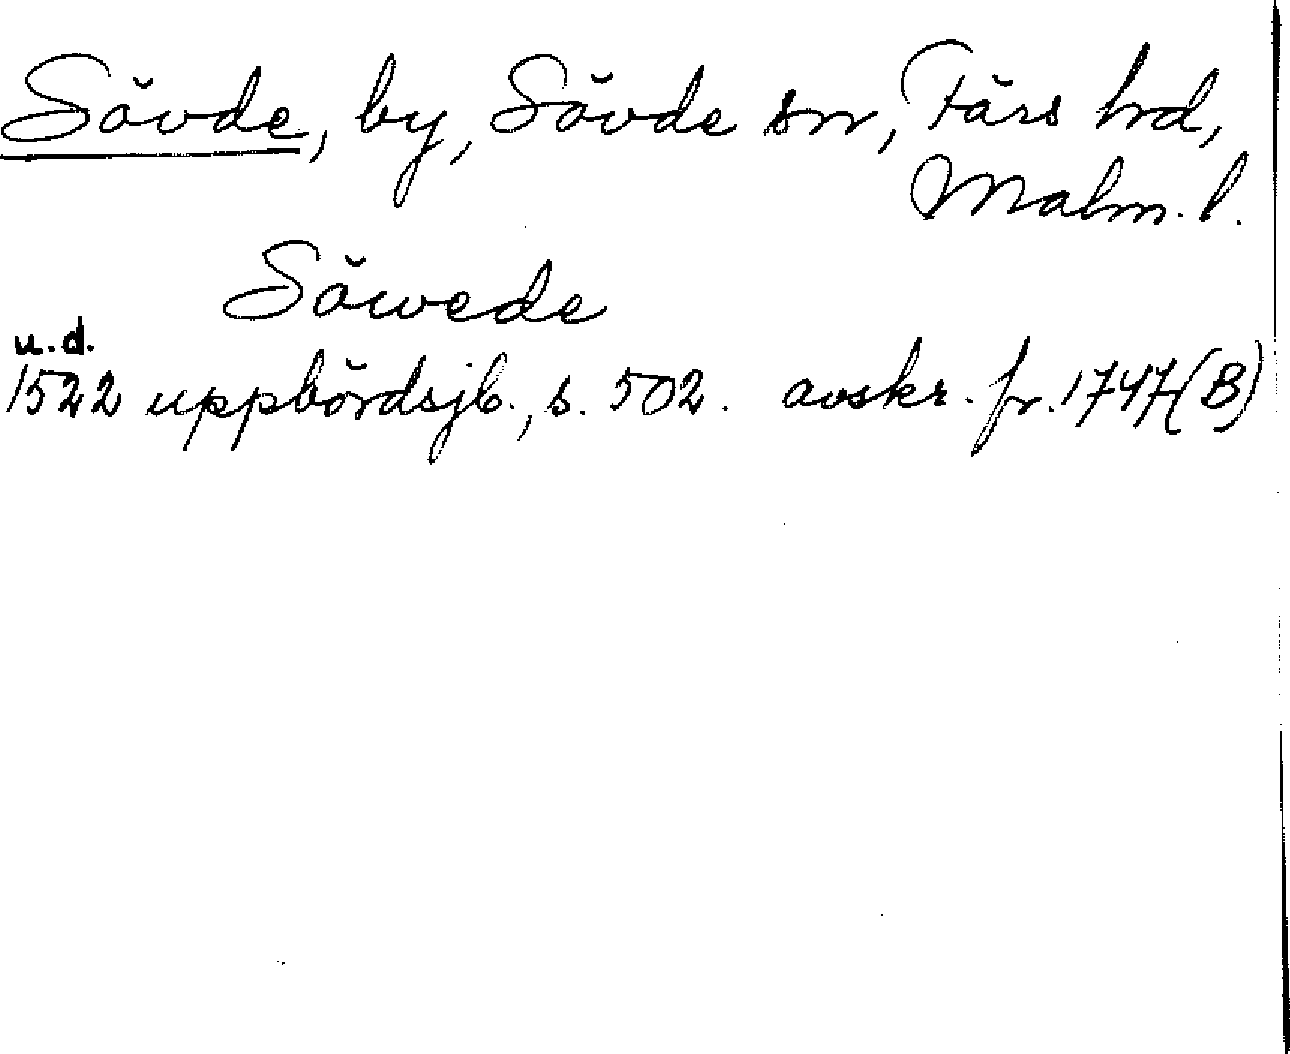 Sövde, by, Sövde sn, Färs hd,
Malm. l.
Söwede
u.d.
1522 uppbördsjb., s. 502. avskr. fr. 1747 (B)